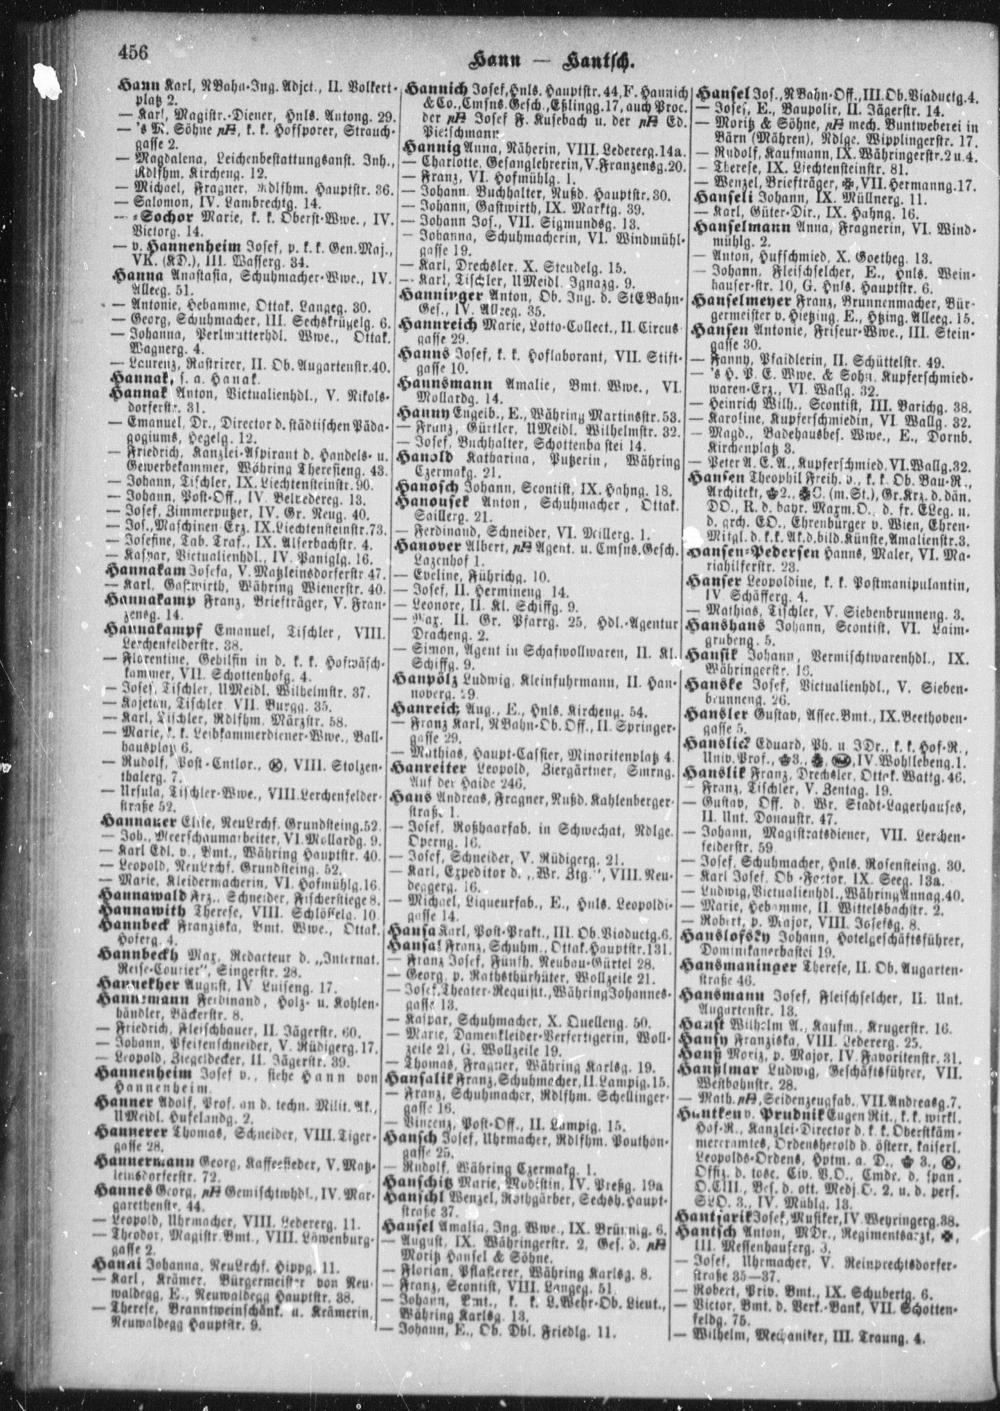 456
Hann — Hantsch.
Hann Karl, NBahn-Ing. Adjct., II. Volkert-
platz 2.
— Karl, Magistr.-Diener, Hnls. Antong. 29.
— 's K. Söhne, k. k. Hoffporer, Strauch-
gasse 2.
— Magdalena, Leichenbestattungsanst. Inh.,
Rdlfhm. Kircheng. 12.
— Michael, Fragner, Rdlfhm. Hauptstr. 36.
— Salomon, IV. Lambrechtg. 14.
— -Sochor Marie, k. k. Oberst-Wwe., IV.
Victorg. 14.
— v. Hannenheim Josef, p. k. k. Gen.Maj.,
VK. (KD.), III. Wasserg. 34.
Hanna Anastasia, Schuhmacher-Wwe., IV.
Alleeg. 51.
— Antonie, Hebamme, Ottak. Langeg. 30.
— Georg, Schuhmacher, III. Sechskrügelg. 6.
— Johanna, Perlmutterhdl. Wwe., Ottak.
Wagnerg. 4.
— Laurenz, Rastrirer, II. Ob. Augartenstr. 40.
Hannak, s. a. Hanak.
Hannak Anton, Victualienhdl., V. Nikols-
dorferstr. 31.
— Emanuel, Dr., Director d. städtischen Päda-
gogiums, Hegelg. 12.
— Friedrich, Kanzlei-Aspirant d. Handels- u.
Gewerbekammer, Währing Theresieng. 43.
— Johann, Tischler, IX. Liechtensteinstr. 90.
— Johann, Post-Off., IV. Belvederg. 13.
— Josef, Zimmerputzer, IV. Gr. Neug. 40.
— Jos., Maschinen-Erz. IX. Liechtensteinstr. 73.
— Josefine, Tab. Traf., IX. Alserbachstr. 4.
— Kaspar, Victualienhdl., IV. Paniglg. 16.
Hannakam Josefa, V. Matzleinsdorferstr 47.
— Karl, Gastwirth, Währing Wienerstr. 40.
Hannakamp Franz, Briefträger, V. Fran-
zensg. 14.
Hannakampf Emanuel, Tischler, VIII.
Lerchenfelderstr. 38.
— Florentine, Gehilfin in d. k. k. Hofwäsch-
kammer, VII. Schottenhofg. 4.
— Josef, Tischler, UMeidl. Wilhelmstr. 37.
— Kajetan, Tischler VII. Burgg. 35.
— Karl, Tischler, Rdlfhm. Märzstr. 58.
— Marie, k. k. Leibkammerdiener-Wwe., Ball-
hausplatz 6.
— Rudolf, Post-Cntlor., VIII. Stolzen-
thalerg. 7.
— Ursula, Tischler-Wwe., VIII. Lerchenfelder-
straße 52.
Hannauer Elise, NeuLrchf. Grundsteing. 52.
— Joh., Meerschaumarbeiter, VI. Mollardg. 9.
— Karl Edl. v., Bmt., Währing Hauptstr. 40.
— Leopold, NeuLrchf. Grundsteing. 52.
— Marie, Kleidermacherin, VI. Hofmühlg. 16.
Hannawald Frz., Schneider, Fischerstiege 8.
Hannawith Therese, VIII. Schlösselg. 10.
Hannbeck Franziska, Bmt. Wwe., Ottak.
Hoferg. 4.
Hannbeckh Max, Redacteur d. „Internat.
Reise-Courier", Singerstr. 28.
Hannekher August, IV. Luiseng. 17.
Hannemann Ferdinand, Holz- u. Kohlen-
händler, Bäckerstr. 8.
— Friedrich, Fleischhauer, II. Jägerstr. 60.
— Johann, Pfeifenschneider, V. Rüdigerg. 17.
— Leopold, Ziegeldecker, II. Jägerstr. 39.
Hannenheim Josef v., siehe Hann von
Hannenheim.
Hanner Adolf, Prof. an d. techn. Milit. Ak.,
UMeidl. Hufelandg. 2.
Hannerer Thomas, Schneider, VIII. Tiger-
gasse 28.
Hannermann Georg, Kaffeesieder, V. Matz-
leinsdorferstr. 72.
Hannes Georg, Gemischtwhdl., IV. Mar-
garethenstr. 44.
— Leopold, Uhrmacher, VIII. Ledererg. 11.
— Theodor, Magistr. Bmt., VIII. Löwenburg-
gasse 2.
Hanai Johanna, NeuLrchf. Hippg. 11.
— Karl, Krämer, Bürgermeister von Neu-
waldegg, E., Neuwaldegg Hauptstr. 38.
— Therese, Branntweinschänk. u. Krämerin,
Neuwaldegg Hauptstr. 9.
Hannich Josef, Hnls. Hauptstr. 44, F. Hannich
& Co., Cmsns. Gesch., Eßlingg. 17, auch Proc.
der Josef F. Kusebach u. der Ed.
Pietschmann
Hannig Anna, Näherin, VIII. Ledererg. 14a.
— Charlotte, Gesanglehrerin, V. Franzensg. 20.
— Franz, VI. Hofmühlg. 1.
— Johann, Buchhalter, Nußd. Hauptstr. 30.
— Johann, Gastwirth, IX. Marktg. 39.
— Johann Jos., VII. Sigmundsg. 13.
— Johanna, Schuhmacherin, VI. Windmühl-
gasse 19.
— Karl, Drechsler. X. Steudelg. 15.
— Karl, Tischler, UMeidl. Ignazg. 9.
Hanninger Anton, Ob. Ing. d. StEBahn-
Ges., IV. Alleeg. 35.
Hannreich Marie, Lotto-Collect., II. Circus-
gasse 29.
Hanns Josef, k. k. Hoflaborant, VII. Stift-
gasse 10.
Hannsmann Amalie, Bmt. Wwe., VI.
Mollardg. 14.
Hanny Engelb., E., Währing Martinsstr. 53.
— Franz, Gürtler, UMeidl. Wilhelmstr. 32.
— Josef, Buchhalter, Schottenbastei 14.
Hanold Katharina, Putzerin, Währing
Czermakg. 21.
Hanosch Johann, Scontist, IX. Hahng. 18.
Hanousek Anton, Schuhmacher, Ottak.
Saillerg. 21.
— Ferdinand, Schneider, VI. Millerg. 1.
Hanover Albert, Agent. u. Cmsns. Gesch.
Lazenhof 1.
— Eveline, Führichg. 10.
— Josef, II. Hermineng. 14.
— Leonore, II. Kl. Schiffg. 9.
— Max, II. Gr. Pfarrg. 25, Hdl.-Agentur
Dracheng. 2.
— Simon, Agent in Schafwollwaren, II. Kl.
Schiffg. 9.
Hanpölz Ludwig, Kleinfuhrmann, II. Han-
noverg. 19.
Hanreich, Aug., E., Hnls. Kircheng. 54.
— Franz Karl, NBahn-Ob. Off., II. Springer-
gasse 29.
— Mathias, Haupt-Cassier, Minoritenplatz 4.
Hanreiter Leopold, Ziergärtner, Smrng.
Auf der Haide 246.
Hans Andreas, Fragner, Nußd. Kahlenberger-
straße 1.
— Josef, Roßhaarfab. in Schwechat, Ndlge.
Operng. 16.
— Josef, Schneider, V. Rüdigerg. 21.
— Karl, Expeditor d. „Wr. Ztg.", VIII. Neu-
deggerg. 16.
— Michael, Liqueurfab., E., Hnls. Leopoldi-
gasse 14.
Hansa Karl, Post-Prakt., III. Ob. Viaductg. 6.
Hansal Franz, Schuhm., Ottak. Hauptstr. 131.
— Franz Josef, Fünfh. Neubau-Gürtel 28.
— Georg, p. Rathsthürhüter, Wollzeile 21.
— Josef, Theater-Requisit., Währing Johannes-
gasse 13.
— Kaspar, Schuhmacher, X. Quelleng. 50.
— Marie, Damenkleider-Verfertigerin, Woll-
zeile 21, G. Wollzeile 19.
— Thomas, Fragner, Währing Karlsg. 19.
Hansalik Franz, Schuhmacher, II. Lampig. 15.
— Franz, Schuhmacher, Rdlfhm. Schellinger-
gasse 16.
— Vincenz, Post-Off., II. Lampig. 15.
Hansch Josef, Uhrmacher, Rdlfhm. Pouthon-
gasse 25.
— Rudolf, Währing Czermakg. 1.
Hanschitz Marie, Modistin, IV. Preßg. 19a
Hanschl Wenzel, Rothgärber, Sechsh. Haupt-
straße 37.
Hansel Amalia, Ing. Wwe., IX. Brünnlg. 6.
— August, IX. Währingerstr. 2, Ges. d.
Moritz Hansel & Söhne.
— Florian, Pflasterer, Währing Karlsg. 8.
— Franz, Scontist, VIII. Langeg. 51
— Johann, Bmt., k. k. L.Wehr-Ob. Lieut.,
Währing Karlsg. 13.
— Johann, E., Ob. Dbl. Friedlg. 11.
Hansel Jos., NBahn-Off., III. Ob. Viaductg. 4.
— Josef, E., Baupolir, II. Jägerstr. 14.
— Moritz & Söhne, mech. Buntweberei in
Bärn (Mähren), Ndlge. Wipplingerstr. 17.
— Rudolf, Kaufmann, IX. Währingerstr. 2 u. 4.
— Therese, IX. Liechtensteinstr. 81.
— Wenzel, Briefträger, VII. Hermanng. 17.
Hanseli Johann, IX. Müllnerg. 11.
— Karl, Güter-Dir., IX. Hahng. 16.
Hanselmann Anna, Fragnerin, VI. Wind-
mühlg. 2.
— Anton, Hufschmied, X. Goetheg. 13.
— Johann, Fleischselcher, E., Hnls. Wein-
hauser-str. 10, G. Hnls. Hauptstr. 6.
Hanselmeyer Franz, Brunnenmacher, Bür-
germeister v. Hietzing, E., Htzing. Alleeg. 15.
Hansen Antonie, Friseur-Wwe., III. Stein-
gasse 30.
— Fanny, Pfaidlerin, II. Schüttelstr. 49.
— 's H. P. E. Wwe. & Sohn, Kupferschmied-
waren-Erz., VI. Wallg. 32.
— Heinrich Wilh., Scontist, III. Barichg. 38.
— Karoline, Kupferschmiedin, VI. Wallg. 32.
— Magd., Badehausbes. Wwe., E., Dornb.
Kirchenplatz 3.
— Peter A. E. A., Kupferschmied, VI. Wallg. 32.
Hansen Theophil Freih. v., k. k. Ob. Bau-R.,
Architekt, 2., C. (m. St.), Gr. Krz. d. dän.
DO., R. d. bayr. Maxm. O., d. fr. ELeg. u.
d. grch. ED., Ehrenbürger v. Wien, Ehren-
Mitgl. d. k. k. Ak. d. bild. Künste, Amalienstr. 3.
Hansen-Pedersen Hanns, Maler, VI. Ma-
riahilferstr. 23.
Hanser Leopoldine, k. k. Postmanipulantin,
IV. Schäfferg. 4.
— Mathias, Tischler, V. Siebenbrunneng. 3.
Hanshans Johann, Scontist, VI. Laim-
grubeng. 5.
Hansik Johann, Vermischtwarenhdl., IX.
Währingerstr. 16.
Hanske Josef, Victualienhdl., V. Sieben-
brunneng. 26.
Hansler Gustav, Assec. Bmt., IX. Beethoven-
gasse 5.
Hanslick Eduard, Ph. u JDr., k. k. Hof-R.,
Univ. Prof., 3., IV. Wohllebeng. 1.
Hanslik Franz, Drechsler, Ottak. Wattg. 46.
— Franz, Tischler, V. Zentag. 19.
— Gustav, Off. d. Wr. Stadt-Lagerhauses,
II. Unt. Donaustr. 47.
— Johann, Magistratsdiener, VII. Lerchen-
felderstr. 59
— Josef, Schuhmacher, Hnls. Rosensteing. 30.
— Karl Josef, Ob. Postor, IX. Seeg. 13a.
— Ludwig, Victualienhdl., Währing Annag. 40.
— Marie, Hebamme, II. Wittelsbachstr. 2.
— Robert, p. Major, VIII. Josefsg. 8.
Hanslofsky Johann, Hotelgeschäftsführer,
Dominikanerbastei 19.
Hansmaninger Therese, II. Ob. Augarten-
straße 46.
Hansmann Josef, Fleischselcher, II. Unt.
Augartenstr. 13.
Hanst Wilhelm A., Kaufm., Krugerstr. 16.
Hansy Franziska, VIII. Ledererg. 25.
Hanß Moriz, p. Major, IV. Favoritenstr. 31.
Hanßlmar Ludwig, Geschäftsführer, VII.
Westbahnstr. 28.
— Math., Seidenzeugfab. VII. Andreasg. 7.
Hantken v. Prudnik Eugen Rit., k. k. wirkl.
Hof-R., Kanzlei-Director d. k. k. Oberstkäm-
mereramtes, Ordensherold d. österr. kaiserl.
Leopolds-Ordens, Hptm. a. D., 3.,
Offiz. d. tosc. Civ. V.O., Cmde. d. span.
O. CIII., Bes. d. ott. Medj. O. 2. u. d. pers.
SLO. 3., IV. Mühlg. 13.
Hantsarik Josef, Musiker, IV. Weyringerg. 38.
Hantsch Anton, MDr., Regimentsarzt,
III. Messenhauserg. 3.
— Josef, Uhrmacher, V. Reinprechtsdorfer-
straße 35—37.
— Robert, Priv. Bmt., IX. Schubertg. 6.
— Victor, Bmt. d. Verk.-Bank, VII. Schotten-
feldg. 75.
— Wilhelm, Mechaniker, III. Traung. 4.